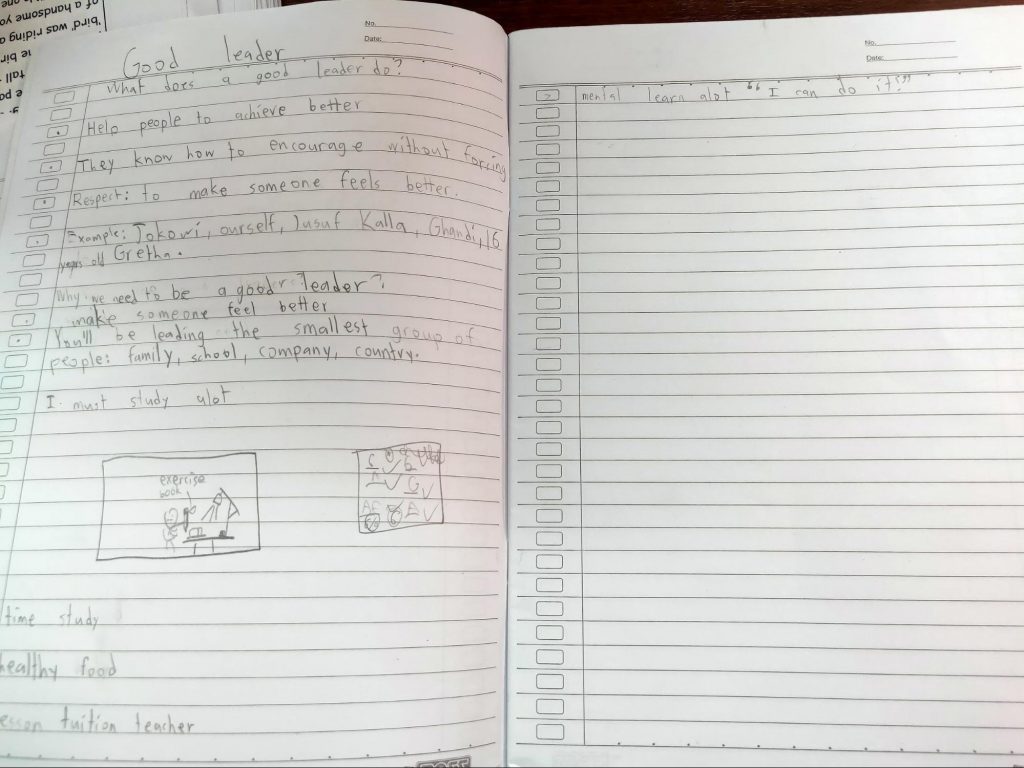 No.
Date:
Good leader
What does a good leader do?
Help people to achieve better
They know how to encourage without forcing
Respect: to make someone feels better.
Example: Jokowi, ourself, Jusuf Kalla, Ghandi, 16
years old Gretha.
Why we need to be a good leader?
make someone feel better
You'll be leading the smallest group of
people: family, school, company, country.
I must study alot
exercise
book
time study
healthy food
esson tuition teacher
No.
Date:
mental learn alot "I can do it!"